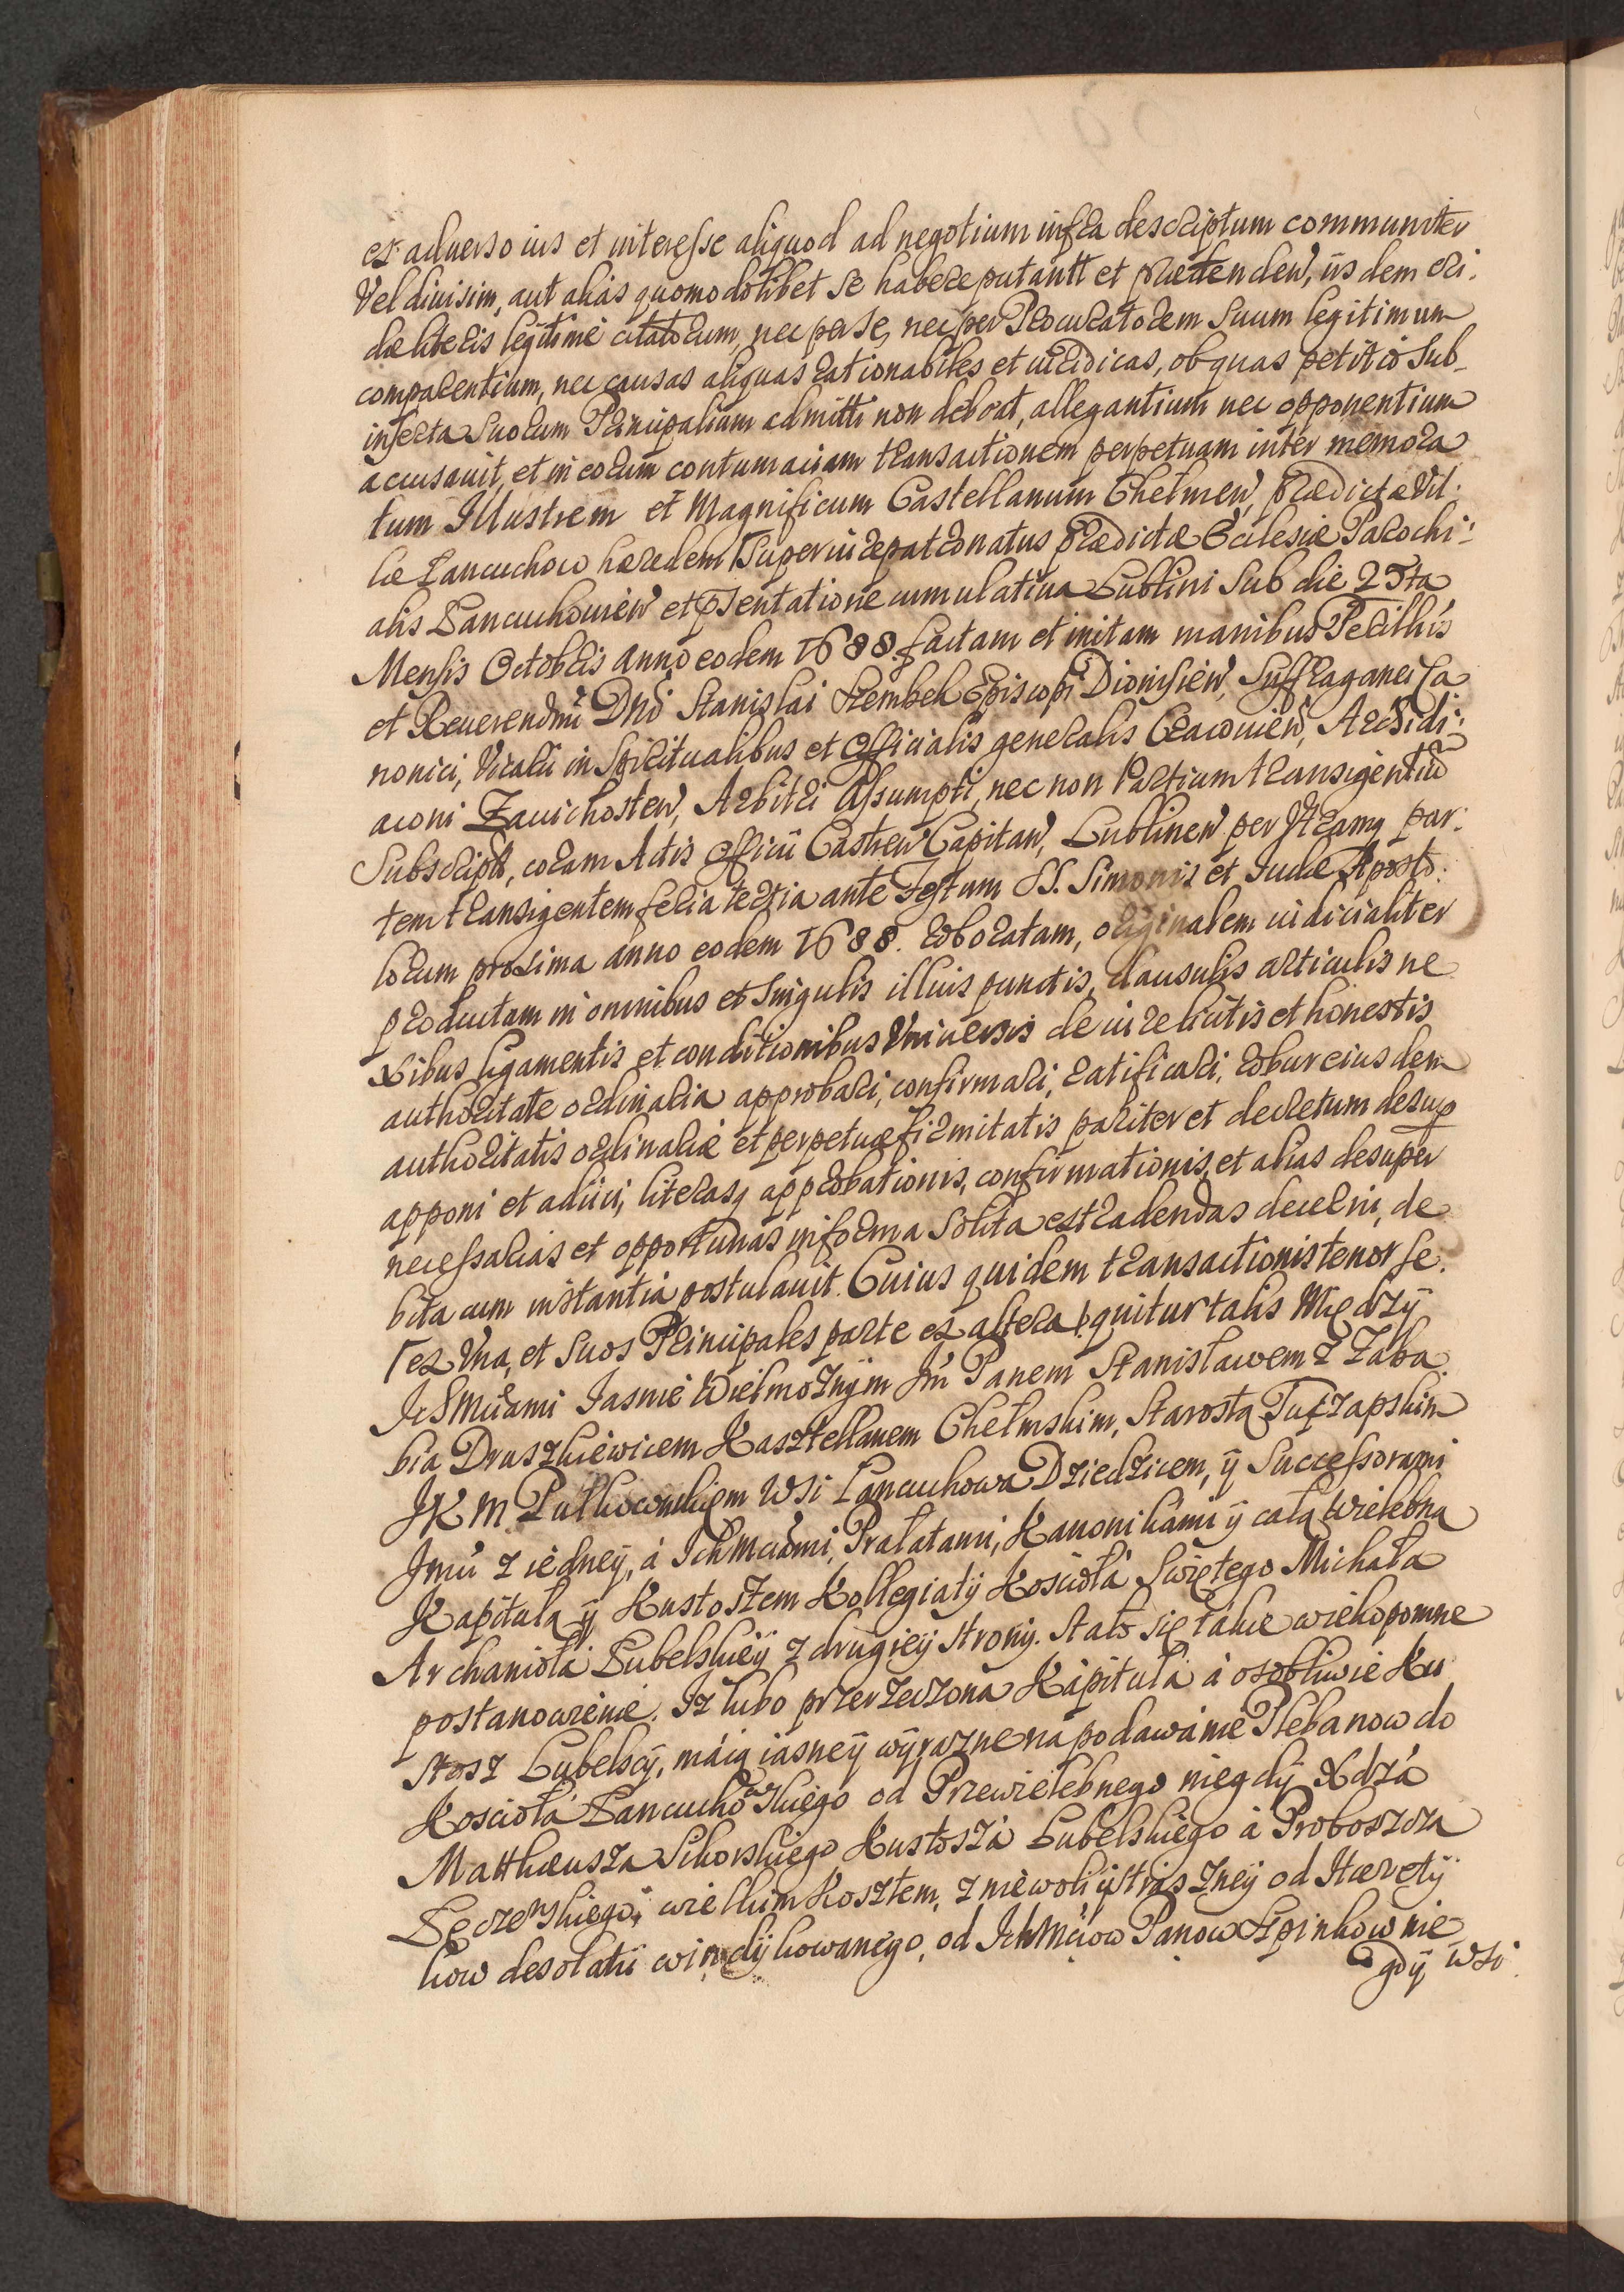 ex adverso ius et interesse aliquod ad negotium infra descriptum communiter
Vel divisim, aut alias quomodolibet se habere putantt et prætenden, iisdem cri-
dæ literis legitimè citatorum, nec per se, nec per Procuratorem suum legitimum
comparentium, nec causas aliquas rationabiles et iuridicas, ob quas petitio sub-
inserta suorum Principalium admitti non debeat, allegantium nec opponentium
accusavit, et in eorum contumaciam transactionem perpetuam inter memora
tum Illustrem et Magnificum Castellanum Chelmen, prædictæ Vil-
læ Łancuchow hæredem super iurepatronatus prædictæ Ecclesiæ Parochi-
alis Łancuchovien et pñtatione cumulativa Lublini sub die 25ta
Mensis Octobris anno eodem 1688 factam et initam manibus Perillris
et Reverendmi Dni Stanislai Szembek Episcopi Dionisien, Suffraganei Ca
nonici, Vicarii in Spiritualibus et Officialis generalis Cracovien, Archidi-
aconi Zavichosten, Arbitri Assumpti, nec non Partium transigentiu
Subscript, coram Actis Officii Castren Capitan, Lublinen per utramq par-
tem transigentem feria tertia ante Festum SS. Simonis et Iudæ Aposto-
lorum proxima anno eodem 1688. roboratam, originalem iudicialiter
productam in omnibus et singulis illius punctis, clausulis articulis ne
xibus ligamentis et conditionibus Universis de iure licitis et honestis
authoritate ordinaria approbari, confirmari, ratificari, robur eiusdem
authoritatis ordinariæ et perpetuæ firmitatis pariter et decretum desup
apponi et adiici, literasq approbationis, confirmationis, et alias desuper
necessarias et opportunas in forma solita extradendas decerni, de
bita cum instantia postulavit. Cuius quidem transactionis tenor se-
ex Una, et suos Principales parte ex altera quitur talis Między
Ichmciami Iasnie Wielmoznym Jm Panem Stanisławem z Zaba
bia Druszkiewicem Kasztellanem Chełmskim, Starostą Tuczapskim
JKM Pułkownikiem Wsi Łancuchowa Dziedzicem, ÿ Successorami
Jmci z iedneÿ, á Ichmciami, Prałatami, Kanonikami ÿ całą wielebną
Kapitułą ÿ Kustoszem Kollegiatÿ Koscioła Swiętego Michała
Archanioła Lubelskieÿ z drugieÿ stronÿ. Stało się takie wiekopomne
postanowienie. Iz lubo przerzeczona Kapituła á osobliwie Ku
stosz Lubelscÿ, máią iasneÿ wÿrazne na podawánie Plebanow do
Koscioła Łancuchowskiego od Przewielebnego niegdÿ Xdzá
Matthæusza Sikorskiego Kustoszá Lubelskiego á Proboszcza
Łęczenskiego, wielkim kosztem, z niewoli ÿ strászneÿ od Hæretÿ
kow desolatii windÿkowanego, od Ichmciow Panow Spinkow nie
gdÿ wsi